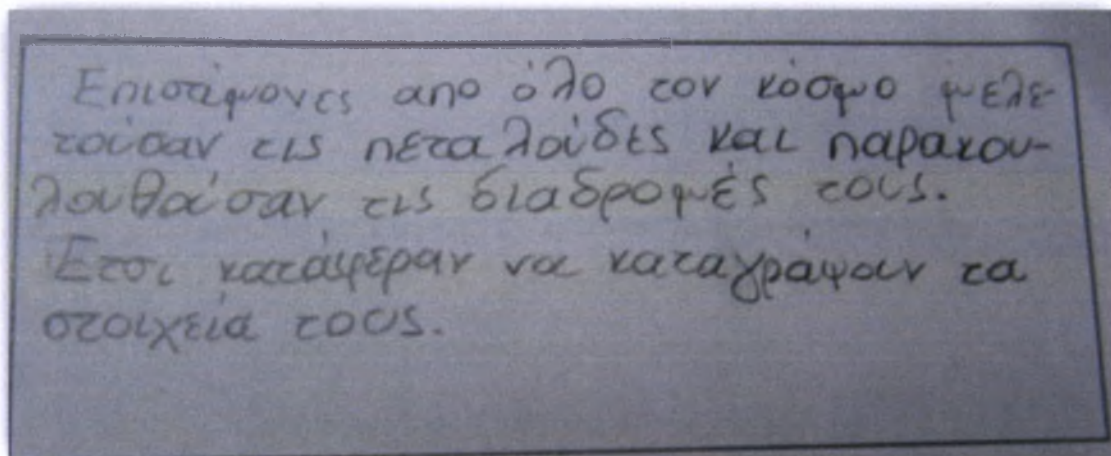 Επιστήμονες απο όλο τον κόσμο μελε-
τούσαν τις πεταλούδες και παρακου-
λουθούσαν τις διαδρομές τους.
Έτσι κατάφεραν να καταγράψουν τα
στοιχεία τους.